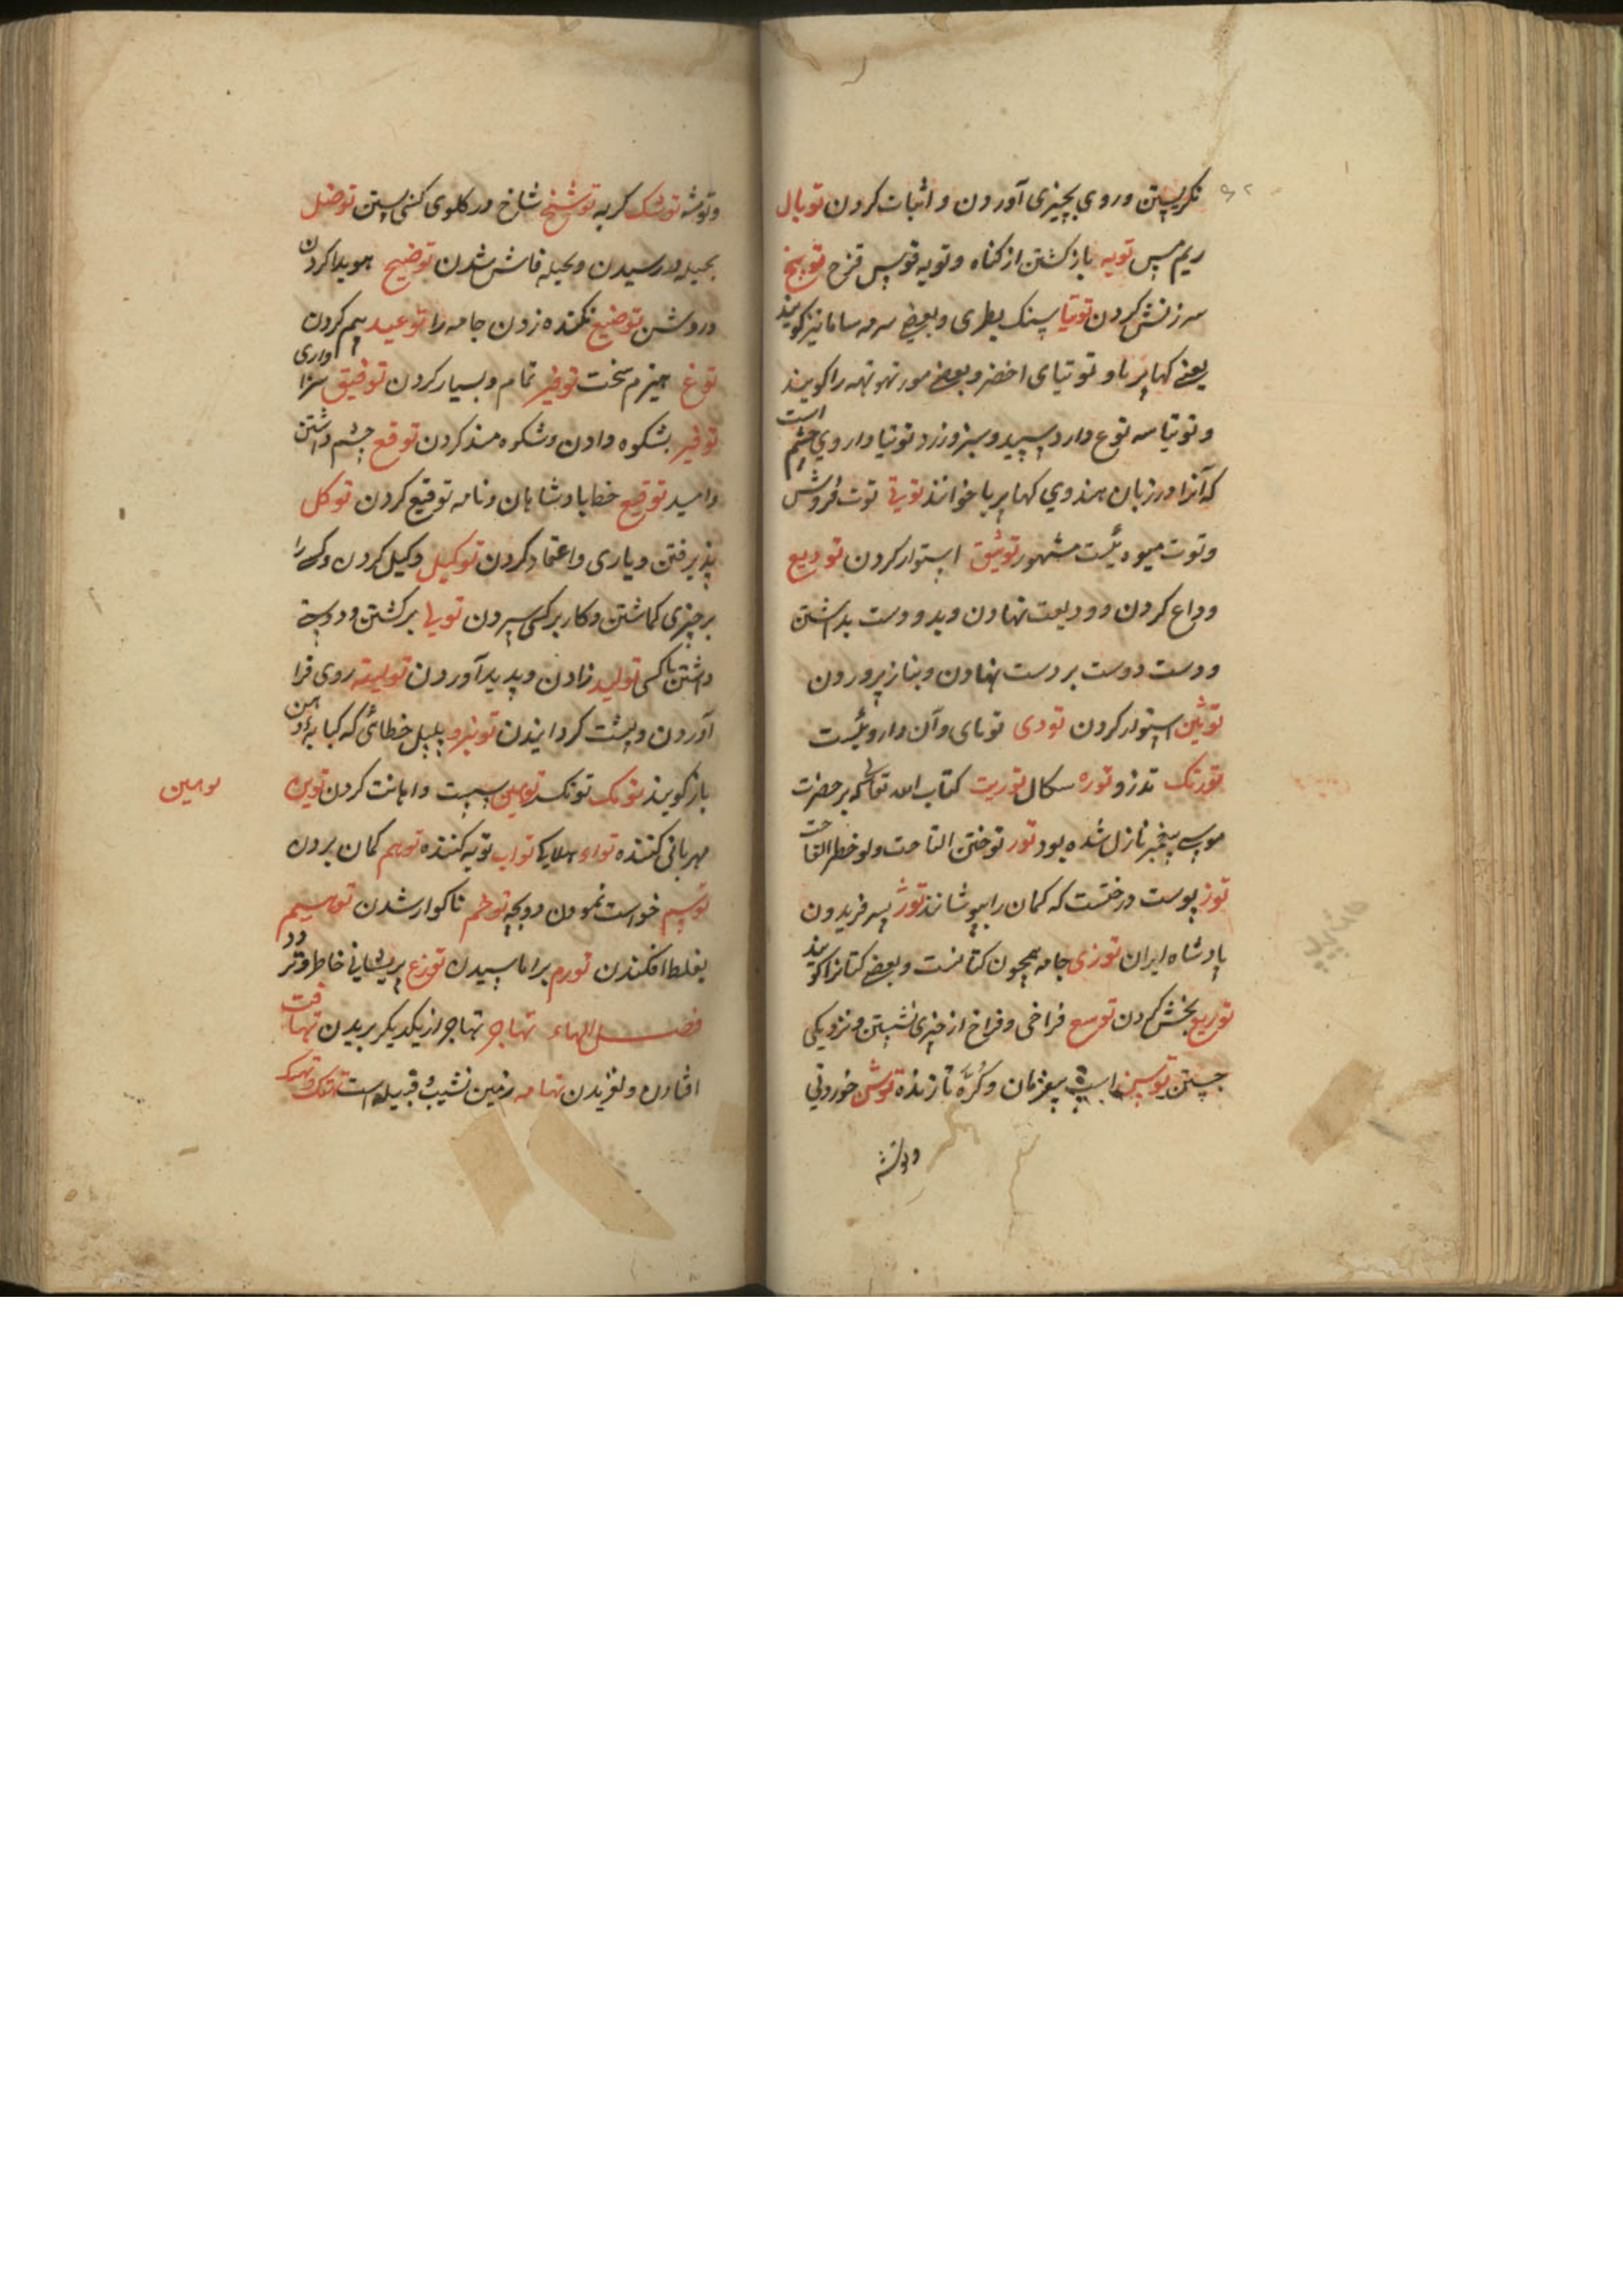 نکریستن و روی بچیزی آوردن و اثبات کردن توبال
ریم مس توبه بازکشتن از کناه و توبه قوس قزح توبیخ
سرزنش کردن توتیا سنک بصری و بعضی سرمه سا ما نیز کویند
یعنی کهاپریا و توتیای اخضر و بعضی مور تهوتهه را کویند
و توتیا سه نوع دارد سپید و سبز و زرد توتیا داروی چشم است
که آنرا در زبان هندوی کهاپریا خوانند توتی توت فروش
و توت میوه ئیست مشهور توثیق استوار کردن تودیع
وداع کردن و ودیعت نهادن و بدو دست بداشتن
و دست دوست بر دست نهادن و بناز پرورودن
توثین استوار کردن تودی تو مای و آن داروئیست
تورنک تذرو توره سکال توریت کتاب الله تعالی که بر حضرت
موسی پیغمبر نازل شده بود تور توختن التاحت ولو خطر القاحت
توز پوست درختست که کمان را بپوشانند تور پسر فریدون
پادشاه ایران توزی جامه همچون کتانست و بعضی کتانرا کویند
توزیع بخش کردن توسع فراخی و فراخ از چیزی نشستن و نزدیکی
جستن توسن اسپ بیفرمان و کرّه تازنده توش خوردنی
وتوشه
وتوشه توشک کربه توشیخ شاخ در کلوی کسی بستن توصل
بحیله در رسیدن و بحیله فاش شدن توضیح هویدا کردن
و روشن توضیع نکنده زدن جامه را توعید بیم کردن
توغ هیزم سخت توفیر تمام و بسیار کردن توفیق سزاواری
توقیر بشکوه دادن و شکوه مند کردن توقع چشم داشتن
و امید توقیع خط پادشاهان و نامه توقیع کردن توکل
پذیرفتن و یاری و اعتماد کردن توکیل وکیل کردن و کسی را
بر چیزی کماشتن و کار بر کسی سپردن تولی برکشتن و دوستی
داشتن با کسی تولید زادن و پدید آوردن تولیته روی فرا
آوردن و پشت کردانیدن تونیرو پلپل خطائی که کبابه دهن
باز کویند تونک تونکه توهین سست و اهانت کردن توین
مهربانی کننده تواو هلایک تواب توبه کننده توهم کمان بردن
توسیم خواست نمودن دوبچه توخم ناکوار شدن توسیم
بغلط افکندن تورم براماسیدن توزع پریشانی خاطر و تردد
فصل الهاء تهاجر تهاجر از یکدیکر بریدن تهافت
افتادن و لغزیدن تهامه زمین نشیب و قبیله است تهتک و تهتک
توهین